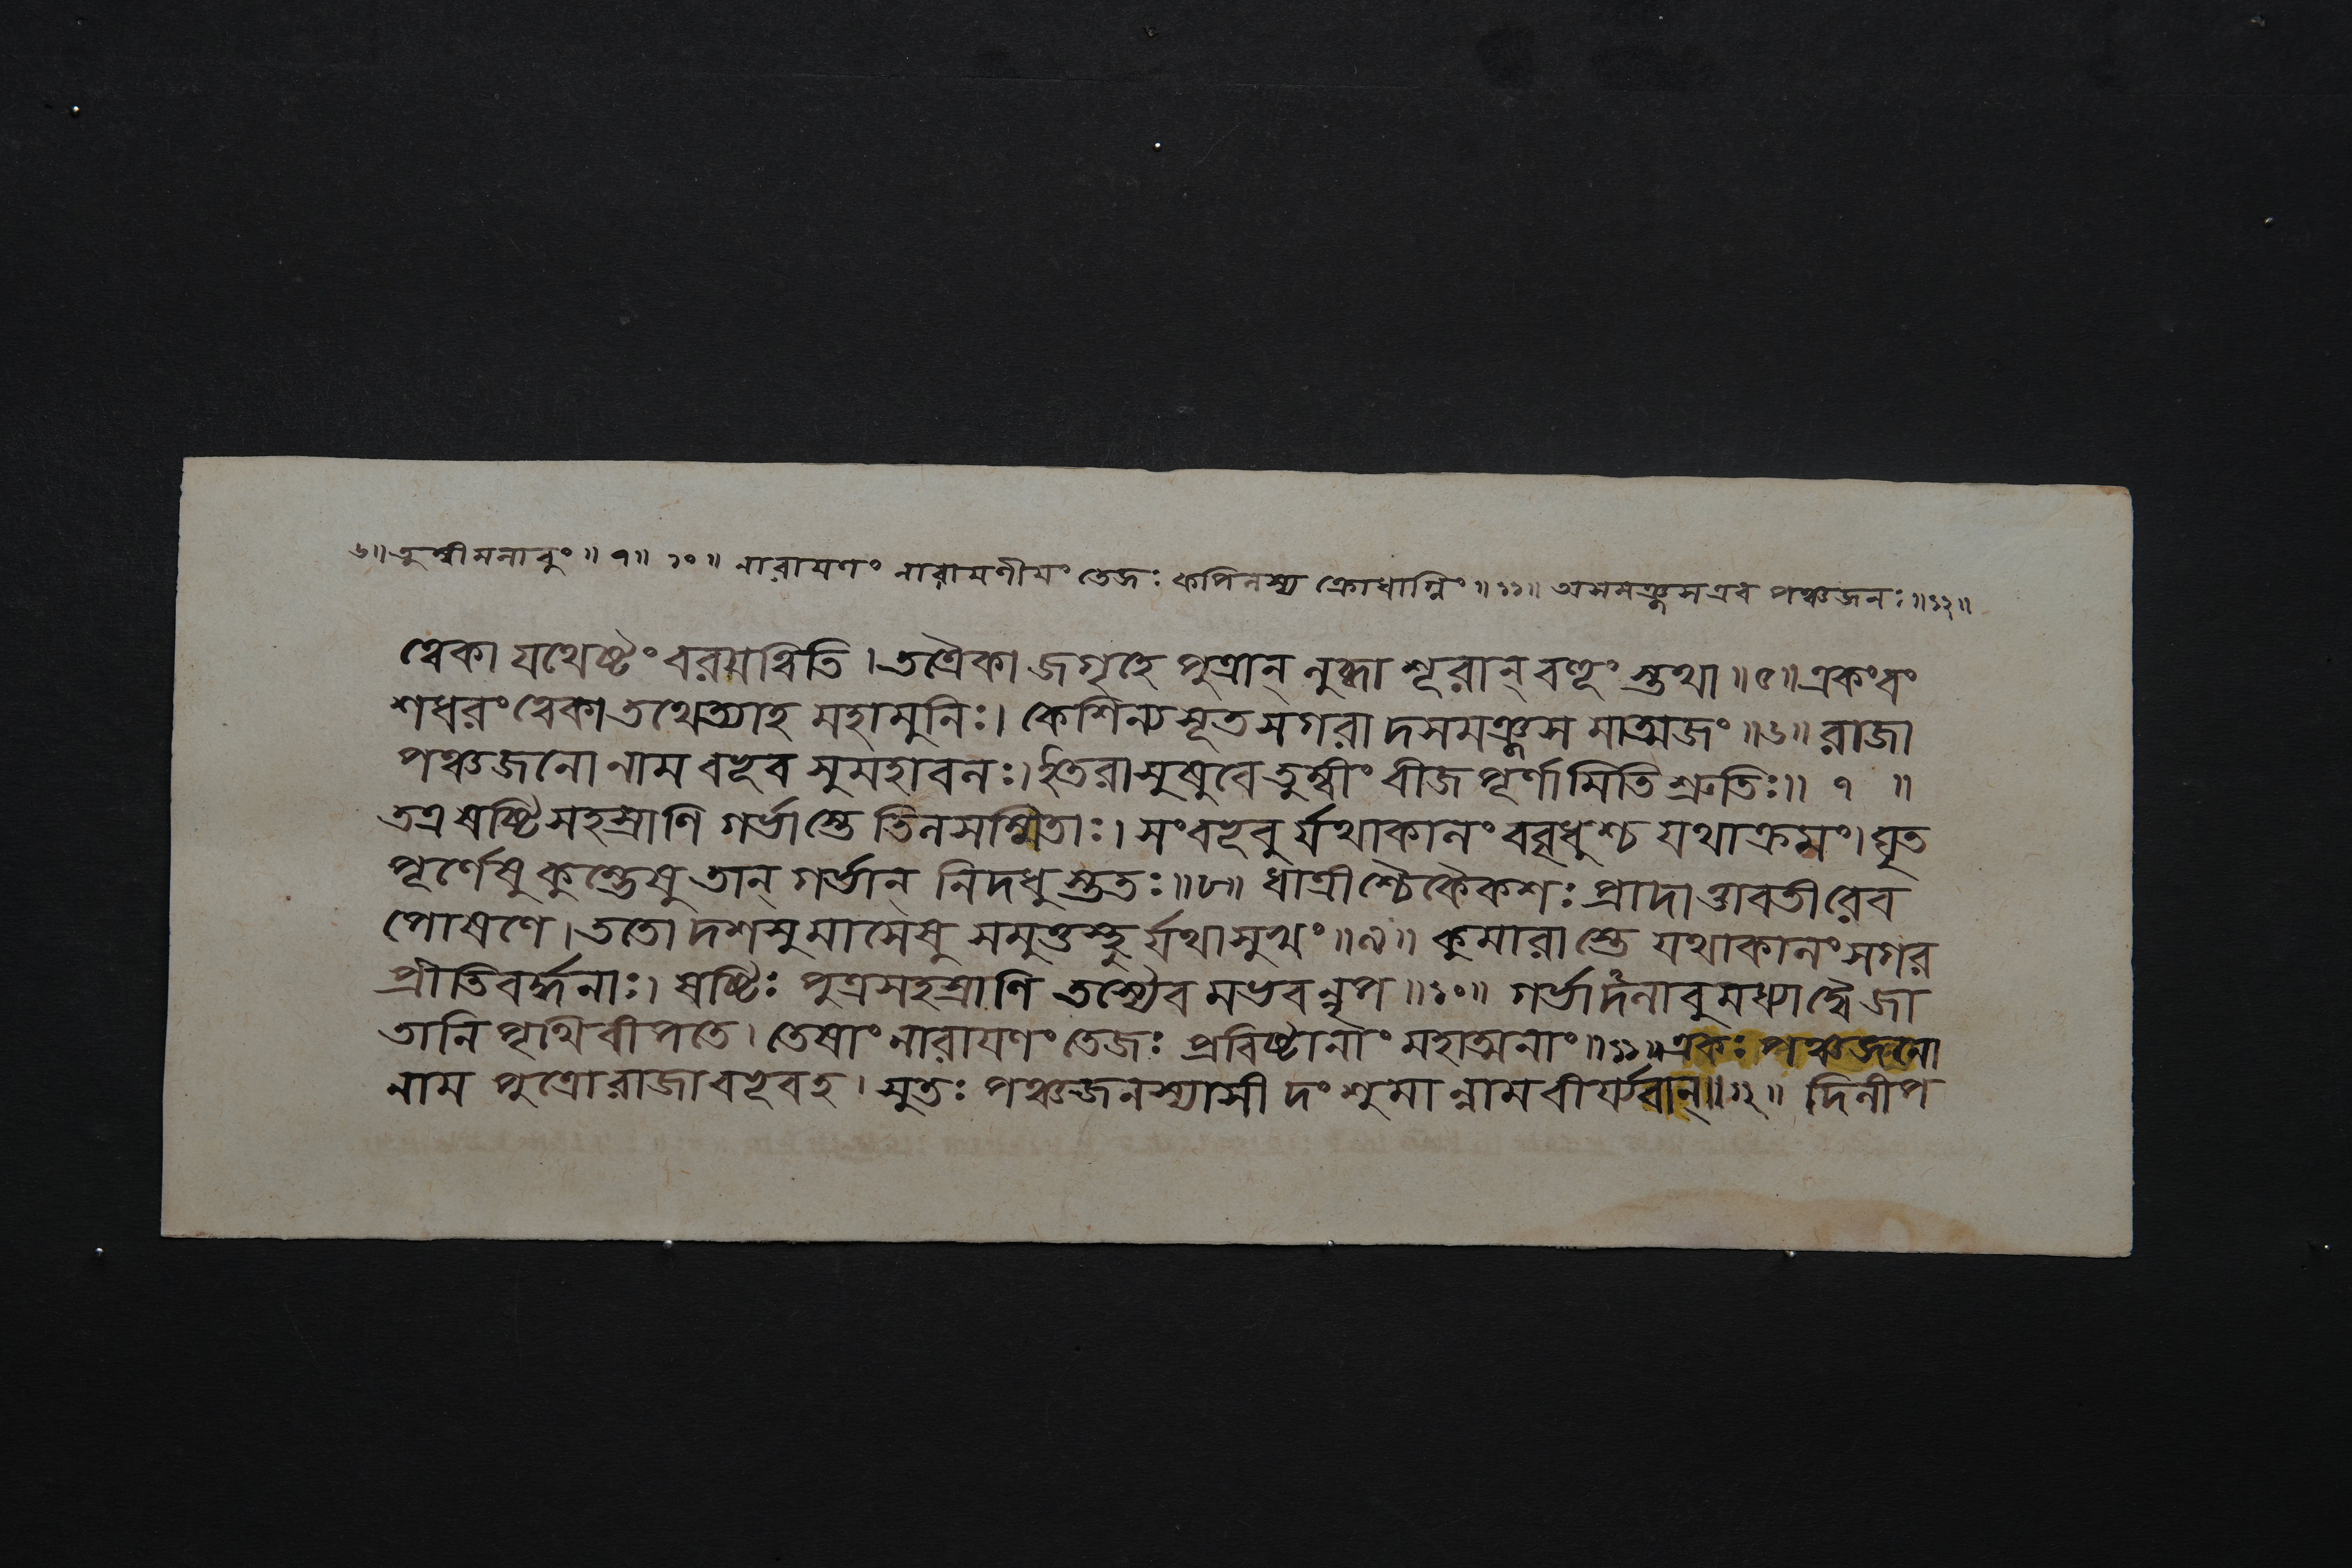 ৬॥ তুম্বীমলাবুং ॥ ৭॥ ১০॥ নারায়ণং নারায়ণীয়ং তেজঃ কপিলস্য ক্রোধাগ্নিং ॥১১॥ অসমঞ্জস এব পঞ্চজনঃ ॥১২॥
ত্বেকা যথেষ্টং বরয়ন্ত্বিতি । তত্রৈকা জগৃহে পুত্রান্ লুব্ধা শূরান্ বহূং স্তথা ॥৫॥ একং বং
শধরং ত্বেকা তথেত্যাহ মহামুনিঃ। কেশিন্যসূত সগরা দসমঞ্জস মাত্মজং ॥৬॥ রাজা
পঞ্চজনো নাম বভূব সুমহাবলঃ। ইতরা সুষুবে তুম্বীং বীজ পূর্ণামিতি শ্রুতিঃ॥ ৭ ॥
তত্র ষষ্টিসহস্রাণি গর্ভাস্তে তিলসম্মিতাঃ। সংবভূবু র্যথাকালং ববৃধুশ্চ যথাক্রমং। ঘৃত
পূর্ণেষু কুম্ভেষু তান্ গর্ভান্ নিদধু স্ততঃ ॥৮॥ ধাত্রীশ্চৈকৈকশঃ প্রাদাত্তাবতীরেব
পোষণে। ততো দশসু মাসেষু সমুত্তস্থু র্যথাসুখং ॥৯॥ কুমারা স্তে যথাকালং সগর
প্রীতিবর্দ্ধনাঃ। ষষ্টিঃ পুত্রসহস্রাণি তস্যৈব মভবন্নৃপ ॥১০॥ গর্ভাদলাবুমধ্যাদ্বৈ জা
তানি পৃথিবীপতে। তেষাং নারায়ণং তেজঃ প্রবিষ্টানাং মহাত্মনাং ॥১১॥ একঃ পঞ্চজনো
নাম পুত্রো রাজা বভূব হ। সুতঃ পঞ্চজনস্যাসী দংশুমা ন্নাম বীর্য্যবান্ ॥১২॥ দিলীপ